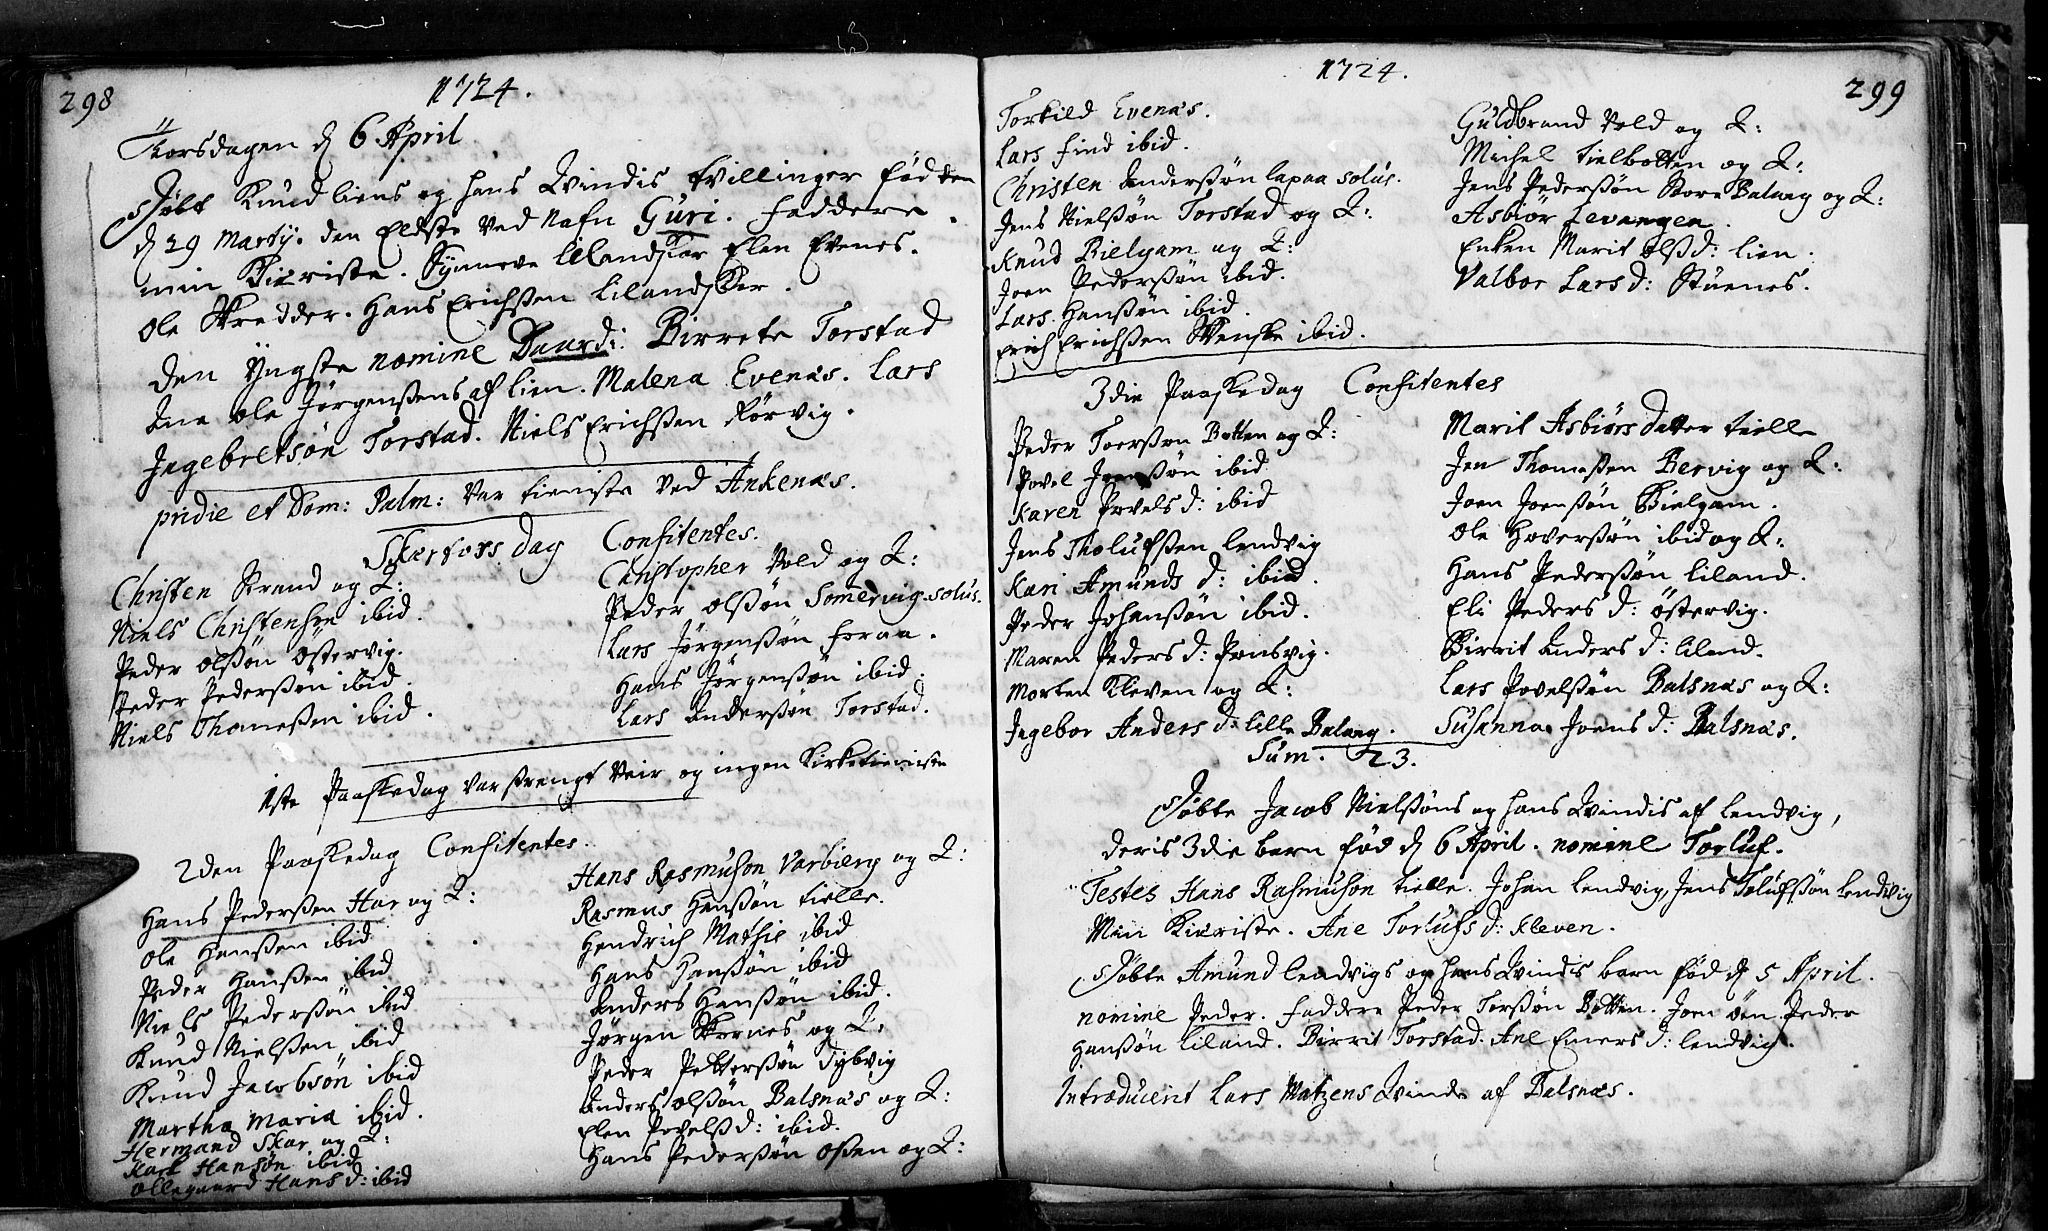 298
1724.
Torsdagen d 6 April
døbt Knud Liens og hans Qvindis tvillinger fød den
d 29 Martij. den Eldste ved Nafn Guri. Faddere.
min Kiæriste. Synneve Lilandskar Elen Evenes.
Ole Skredder. Hans Erichsen Lilandskar.
den Yngste nomine Daardi: Birrete Torstad
Ane Ole Jørgensens af Lien. Malena Evenæs. Lars
Ingebretsøn Torstad. Niels Erichsen Rørvig.
pridie et Dom: Palm: var tieniste ved Ankenæs.
Skærtors dag Confitentes.
Christen Strand og Q:
Niels Christensøn ibid.
Peder Olsøn Østervig.
Peder Pedersøn ibid.
Niels Thomesen ibid.
Christopher Vold og Q:
Peder Olsøn Somervig solus.
Lars Jørgensøn Foraa.
Hans Jørgensøn ibid.
Lars Andersøn Torstad.
1ste Paaskedag var strengt Veir og ingen Kirketieniste
2den Paaskedag Confitentes.
Hans Pedersen Har og Q:
Ole Hansen ibid
Peder Hansen ibid
Niels Pedersøn ibid
Knud Nielsen ibid
Knud Jacobsøn ibid
Martha Maria ibid.
Hermand Skar og Q:
Karl Hansøn ibid
Ollegaard Hans d: ibid
Hans Rasmuson Varbierg og Q:
Rasmus Hansøn Tielle.
Hendrich Mathie ibid
Hans Hansøn ibid
Anders Hansøn ibid.
Jørgen Skornes og Q:
Peder Pettersøn Dybvig
Anders Olsøn Balsnæs og Q:
Elen Povels d: ibid.
Hans Pedersøn Osen og Q:
1724.
299
Torkild Evenæs.
Lars Find ibid.
Christen Andersøn Lapaa solus.
Jens Nielsøn Torstad og Q:
Knud Bielgam og Q:
Joen Pedersøn ibid.
Lars Hansøn ibid.
Erich Erichsen Svenske ibid.
Guldbrand Vold og Q:
Michel Tielbotten og Q:
Jens Pedersøn Store Balang og Q:
Asbiør Levangen.
Enken Marit Ols d: Lien.
Valbor Lars d: Stuenes.
3die Paaskedag Confitentes
Peder Toersøn Botten og Q:
Povel Joensøn ibid
Karen Povels d: ibid
Jens Tholufsen Lendvig
Kari Amunds d: ibid.
Peder Johansøn ibid.
Maren Peders d: Ponsvig.
Morten Kleven og Q:
Ingebor Anders d: Lille Balang.
Marit Asbiørs datter Tielle
Jen Thomesen Bervig og Q:
Joen Joensøn Bielgam.
Ole Hoversøn ibid og Q:
Hans Pedersøn Liland.
Eli Peders d: Østervig.
Birrit Anders d: Liland.
Lars Povelsøn Balsnæs og Q:
Susanna Joens d: Balsnæs.
Sum. 23.
Døbte Jacob Nielsøns og hans Qvindis af Lendvig,
deris 3die barn fød d 6 April. nomine Torluf.
Testes Hans Rasmuson Tielle. Johan Lendvig, Jens Tolufsøn Lendvig
Min Kiæriste. Ane Torlufs d: Kleven.
Døbte Amund Lendvigs og hans Qvindis barn fød d 5 April.
nomine Peder. Faddere Peder Torsøn Botten. Joen Øen. Peder
Hansøn Liland. Birrit Torstad. Ane Emers d: Lendvig.
Introducerit Lars Matzens Qvinde af Balsnæs.